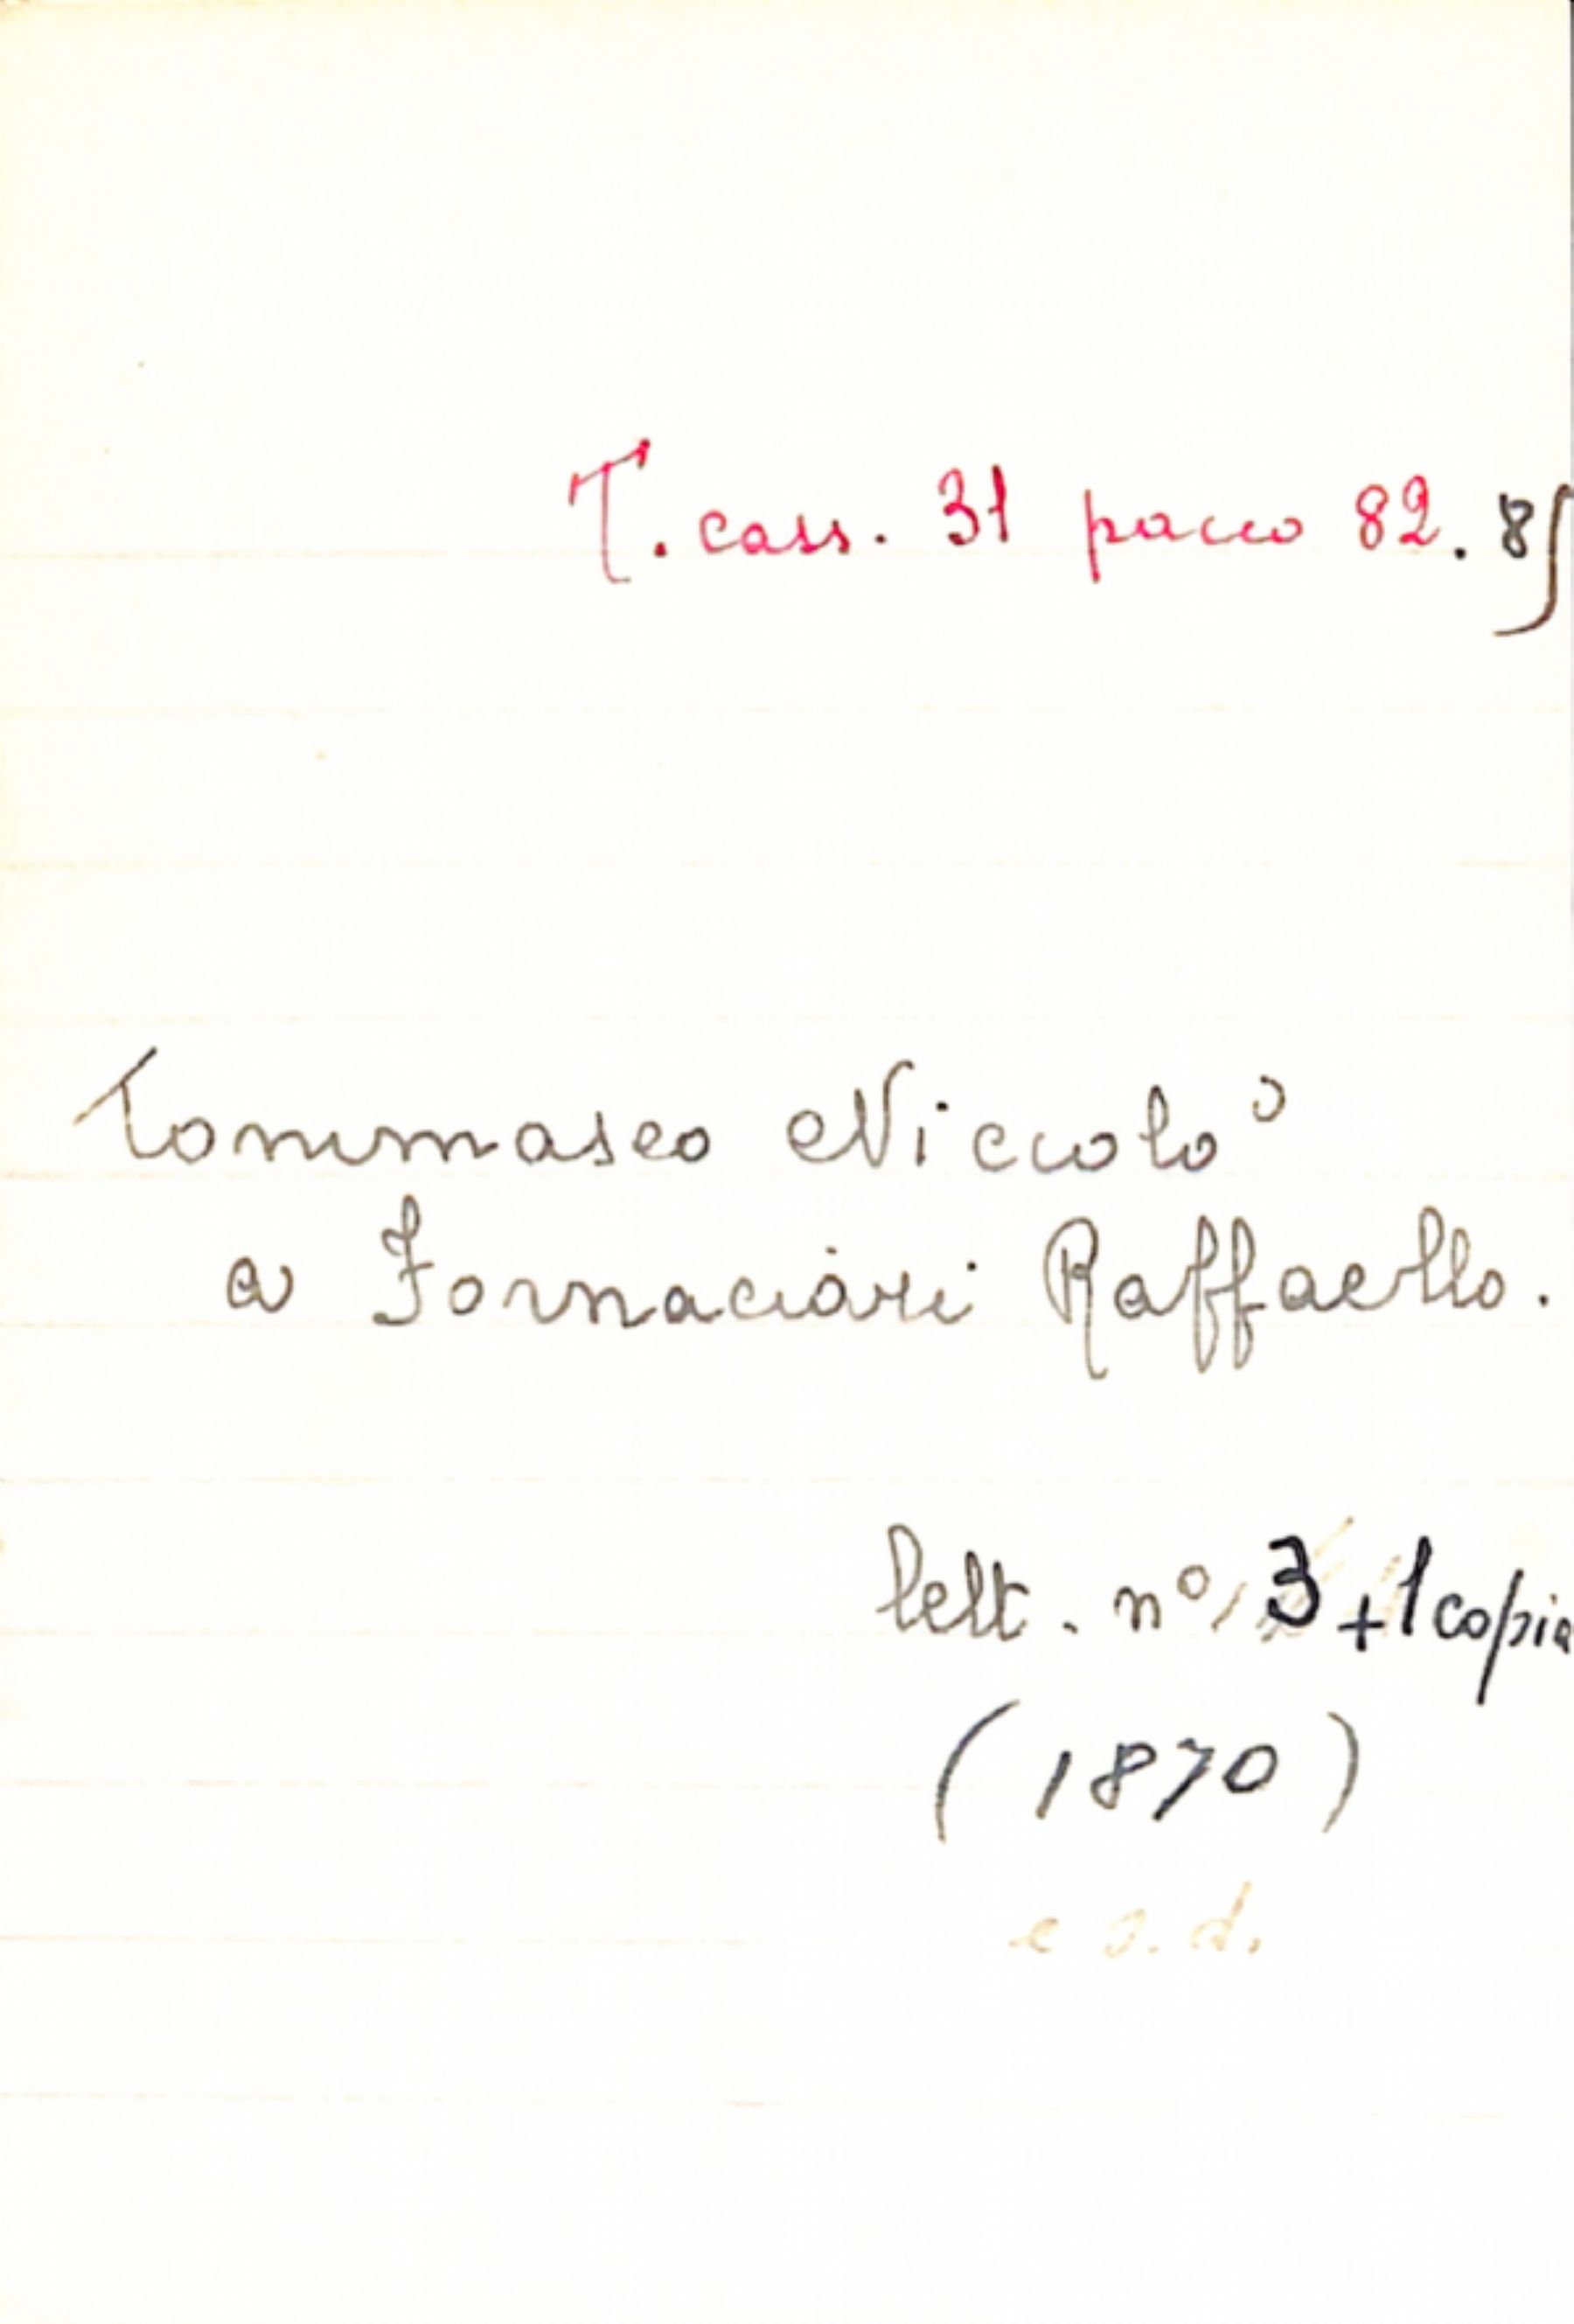 T. cass. 31 pacco 82. 85
Tommaseo Niccolò
a Fornaciari Raffaello.
lett. nº 3 + 1 copia
(1870)
e s.d.